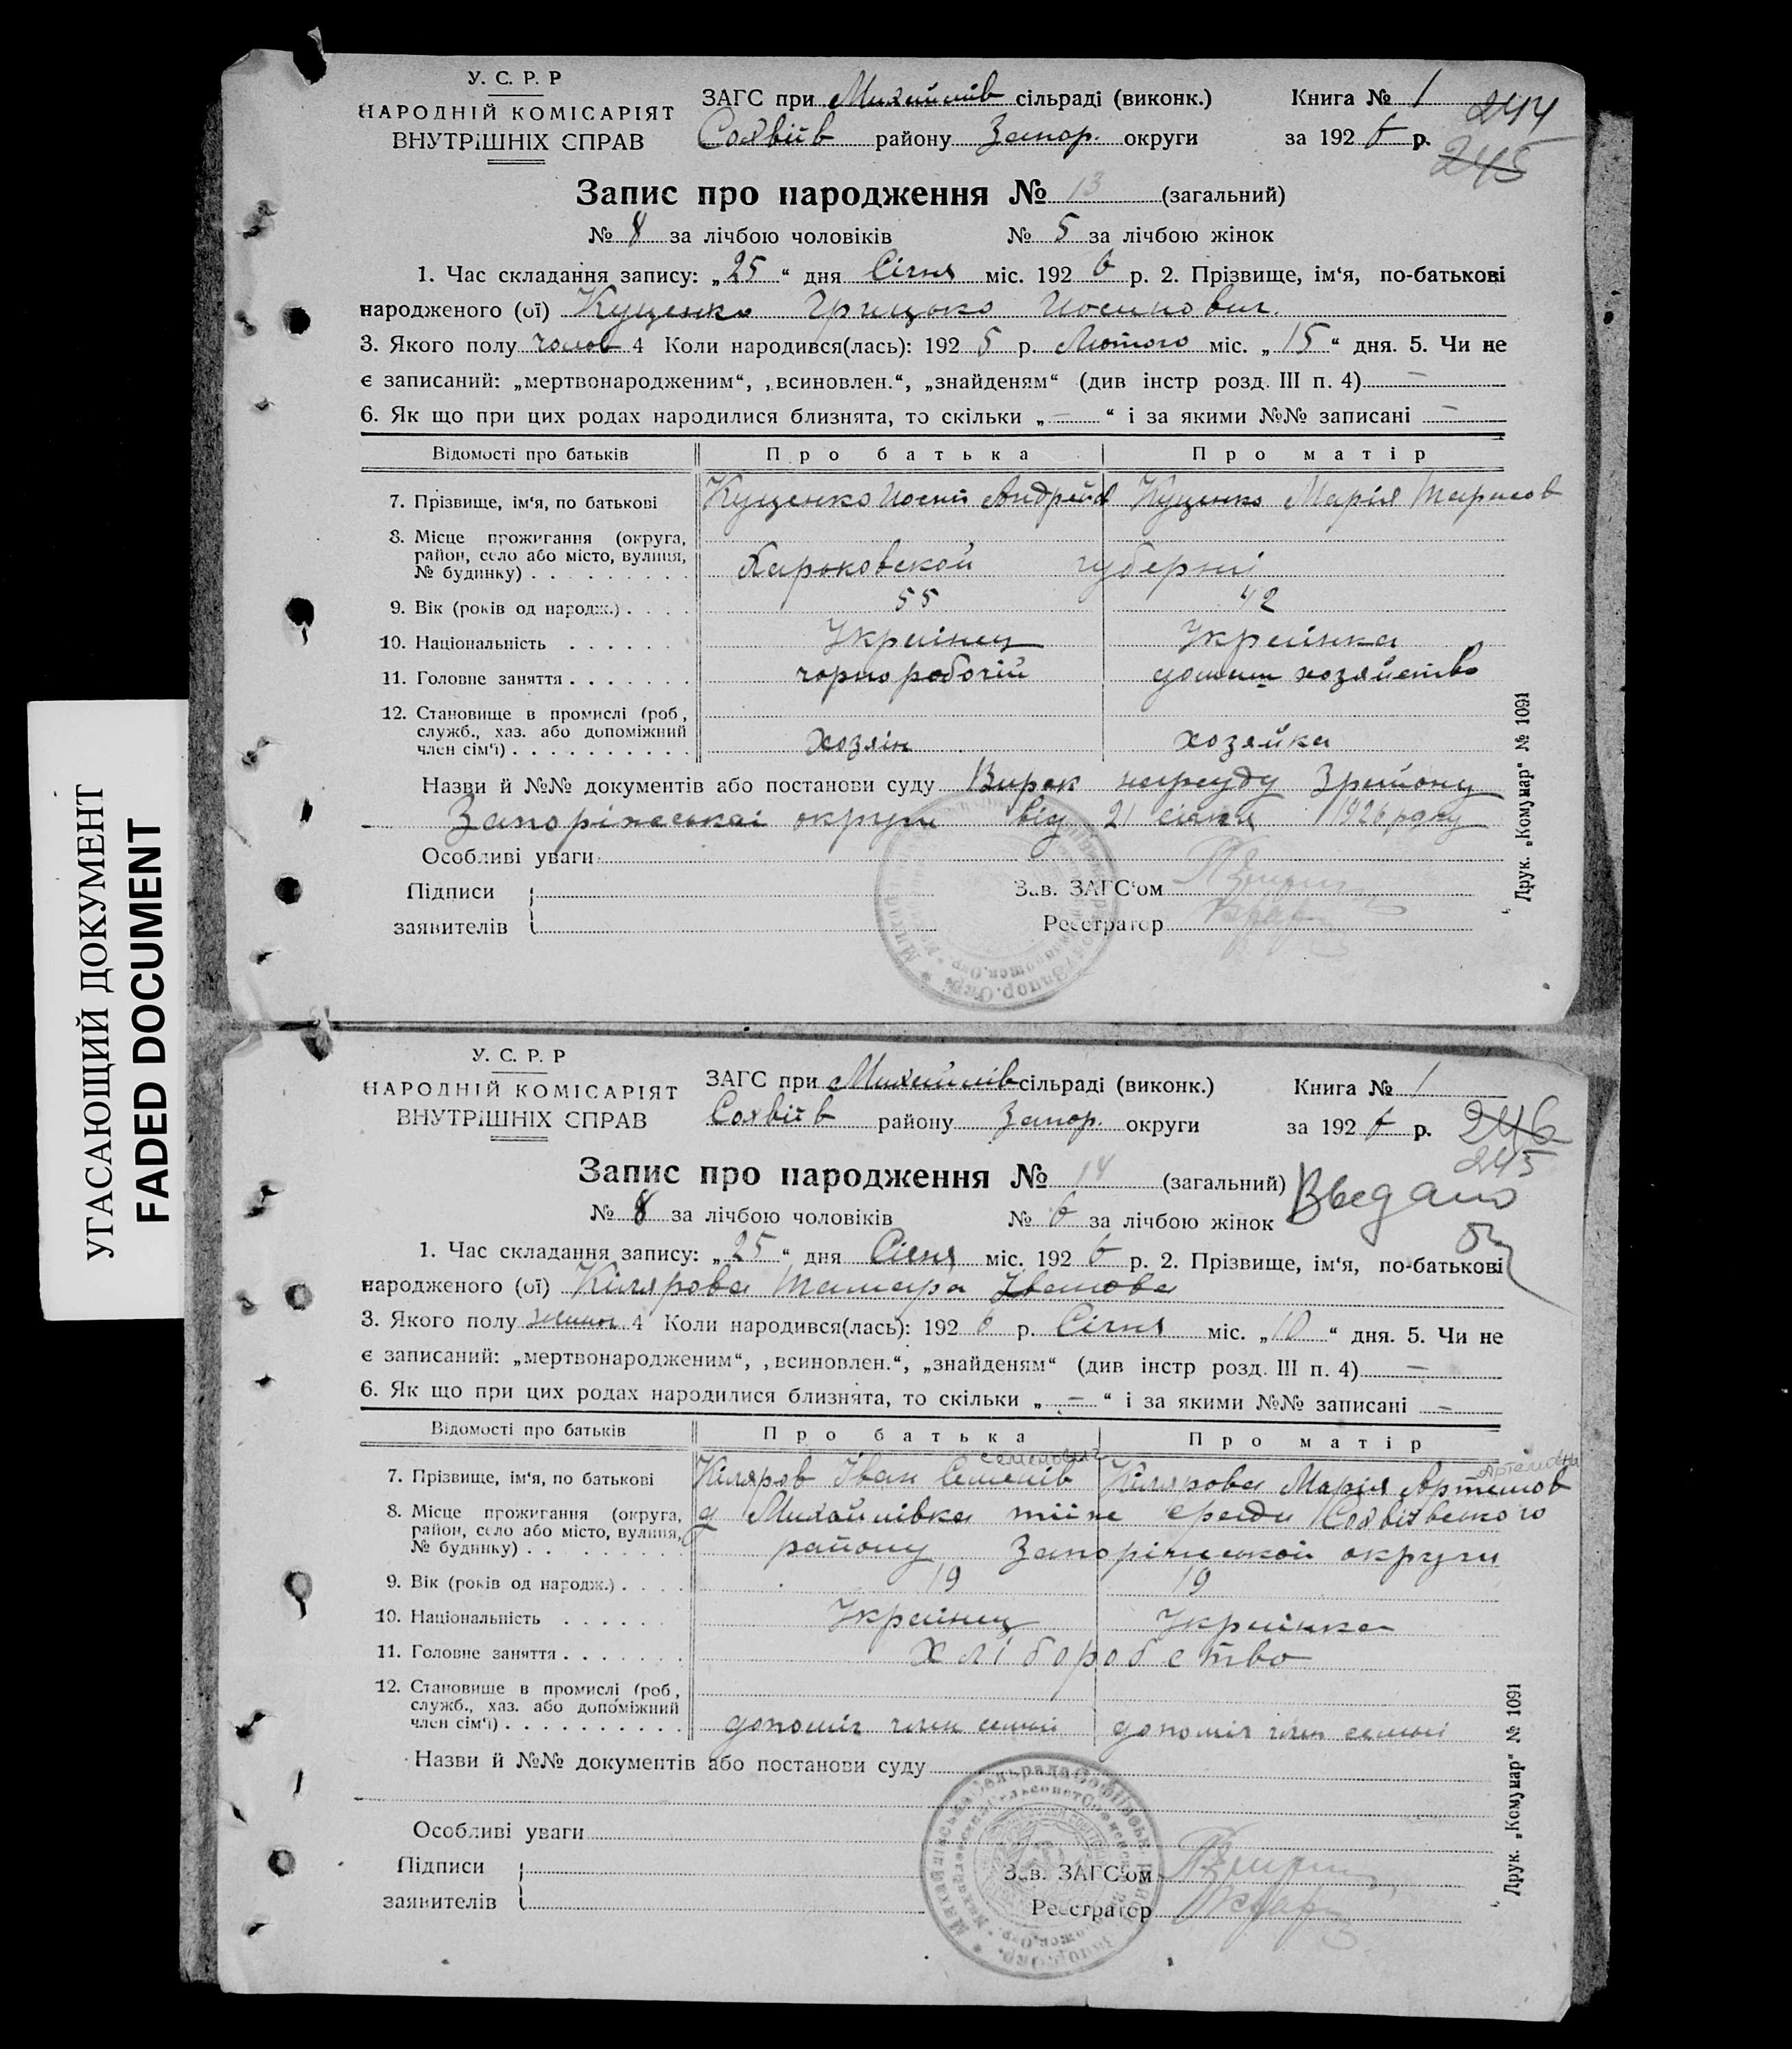 УГАСАЮЩИЙ ДОКУМЕНТ
FADED DOCUMENT
У. С. Р. Р
НАРОДНІЙ КОМІСАРІЯТ
ВНУТРІШНІХ СПРАВ
ЗАГС при Михайлів сільраді (виконк.)
Софіїв району Запор. округи
Книга № 1
за 192 6 р.
244
245
Запис про народження № 13 (загальний)
№ 8 за лічбою чоловіків № 5 за лічбою жінок
1. Час складання запису: „25“ дня Січня міс. 192 6 р. 2. Прізвище, ім‘я, по-батькові
народженого (ої) Куценко Грицько Иосипович.
3. Якого полу чолов 4 Коли народився(лась): 192 5 р. Лютого міс. „15“ дня. 5. Чи не
є записаний: „мертвонародженим“, „всиновлен.“, „знайденям“ (див інстр розд. III п. 4) —
6. Як що при цих родах народилися близнята, то скільки „—“ і за якими №№ записані —
Відомості про батьків Про батька Про матір
7. Прізвище, ім‘я, по батькові Куценко Иосип Андрейов Куценко Марія Тарасов
8. Місце прожигання (округа,
район, село або місто, вулиця,
№ будинку) Харьковской губерни
9. Вік (років од народж.) 55 42
10. Національність Украінец Украінка
11. Головне заняття чорноробочій домашн хозяйство
12. Становище в промислі (роб,
служб., хаз. або допоміжний
член сім‘ї) хозяін хозяйка
Назви й №№ документів або постанови суду Вирок нарсуду 3 району
Запоріжськаі округи від 21 січня 1926 року
Особливі уваги
Підписи
заявителів
Зав. ЗАГС‘ом
Реєстратор
Друк. „Комунар“ № 1091
У. С. Р. Р
НАРОДНІЙ КОМІСАРІЯТ
ВНУТРІШНІХ СПРАВ
ЗАГС при Михайлів сільраді (виконк.)
Софіїв району Запор. округи
Книга № 1
за 192 6 р.
246
245
Запис про народження № 14 (загальний)
№ 8 за лічбою чоловіків № 6 за лічбою жінок
1. Час складання запису: „25“ дня Січня міс. 192 6 р. 2. Прізвище, ім‘я, по-батькові
народженого (ої) Кілярова Тамара Іванова
3. Якого полу жиноч 4 Коли народився(лась): 192 6 р. Січня міс. „10“ дня. 5. Чи не
є записаний: „мертвонародженим“, „всиновлен.“, „знайденям“ (див інстр розд. III п. 4) —
6. Як що при цих родах народилися близнята, то скільки „—“ і за якими №№ записані —
Відомості про батьків Про батька Про матір
Семенович Артемовна
7. Прізвище, ім‘я, по батькові Кіляров Іван Семенів Кілярова Марія Артемов
8. Місце прожигання (округа,
район, село або місто, вулиця,
№ будинку) д Михайлівка Софіївського
району Запоріжськой округи
9. Вік (років од народж.) 19 19
10. Національність Украінец Украінка
11. Головне заняття хліборобство
12. Становище в промислі (роб,
служб., хаз. або допоміжний
член сім‘ї) допоміг член семьи допоміг член семьи
Назви й №№ документів або постанови суду
Особливі уваги
Підписи
заявителів
Зав. ЗАГС‘ом
Реєстратор
Друк. „Комунар“ № 1091